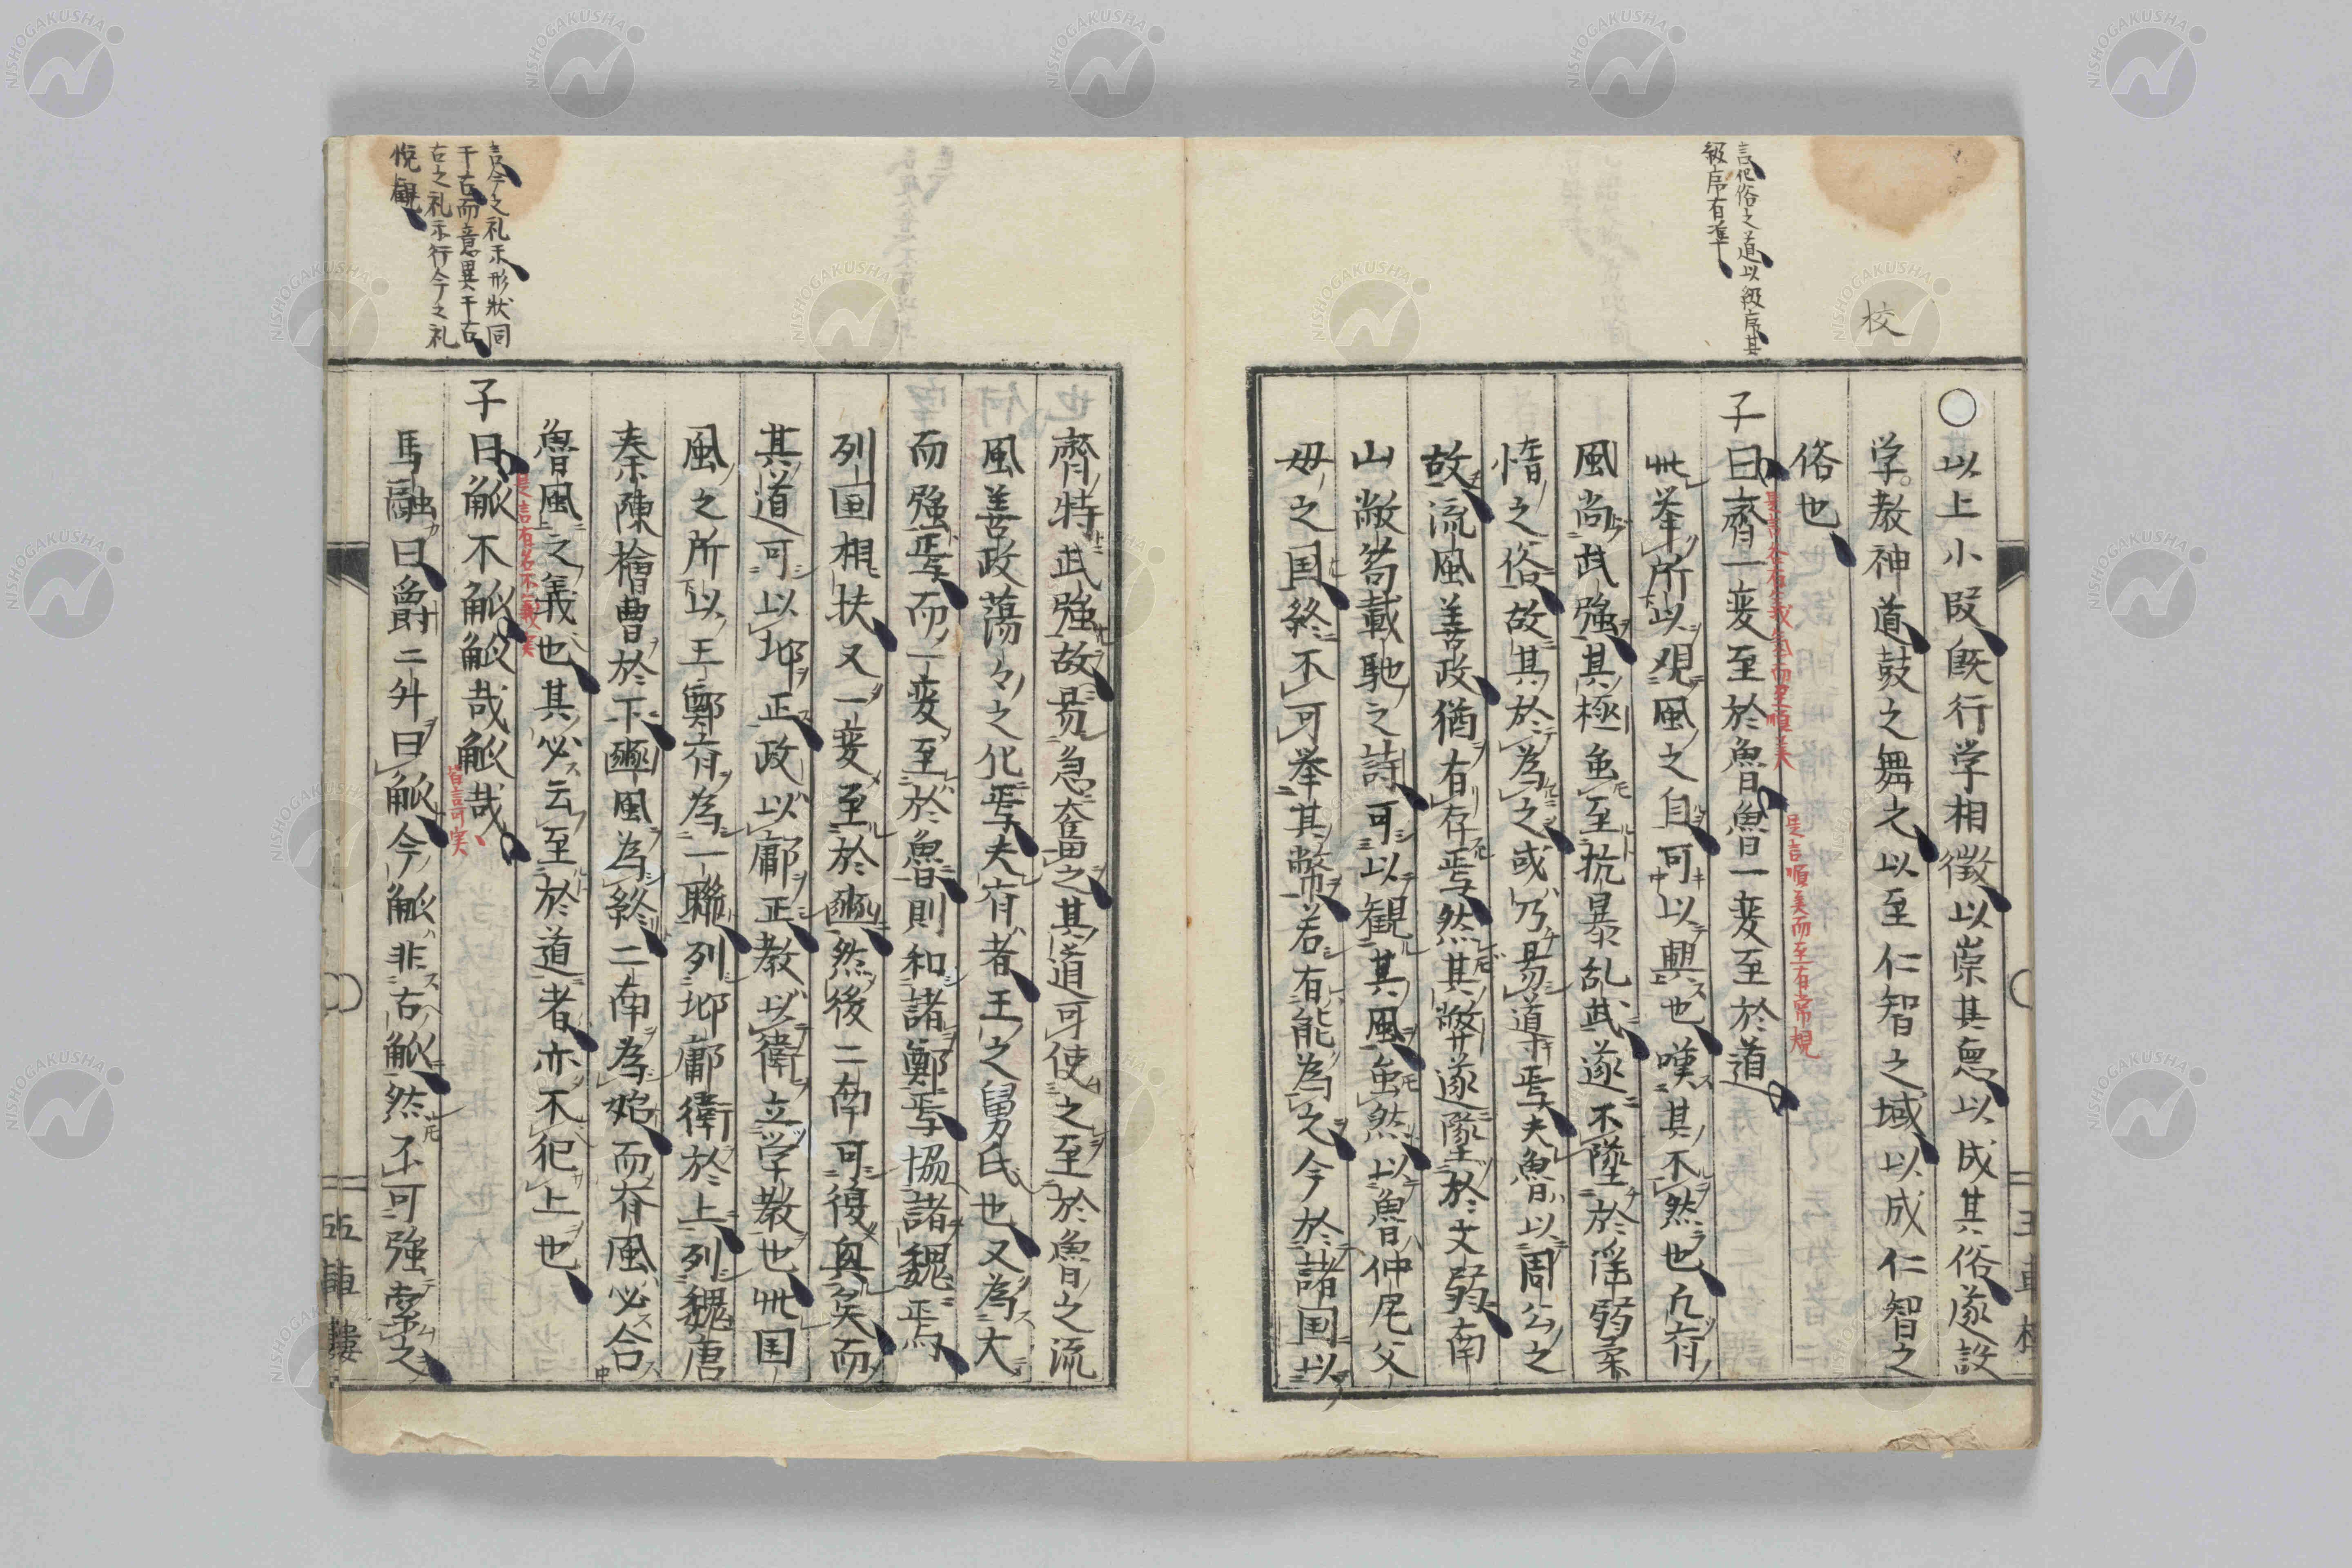 校
言化俗之道以級序其
級序有準
其以上小段既行学相徴以崇其悳以成其俗遂設
学教神道鼓之舞之以至仁智之域以成仁智之
俗也
子曰齊一变至於魯魯一变至於道
是言順美而至有常規
此挙所以观風之自可以興也嘆其不然也凢有
風尚武強其極虽至抗暴乱武遂不墜於淫弱柔
惰之俗故其於為之或乃易導焉夫魯以周公之
故流風善政猶有存焉然其弊遂墜於文弱南
山敝笱載馳之詩可以観其風虽然以魯仲尾父
毋之国終不可挙其幣若有能為之今於諸国以
齊特武強故易急奮之其道可使之至於魯之流
風善政蕩々之化焉夫有者王之舅氏也又為大
而強焉而一变至於魯則和諸鄭焉協諸魏焉
列国相扶又一变至於豳然後二南可復興矣而
其道可以邶正政以鄘正教以衛立学教也此国
風之所以王鄭有為一聯列邶鄘衛於上列魏唐
秦陳檜曹於下豳風為終二南為始而有風必合
魯風之義也其必云至於道者亦不犯上也
是言有名不義実
子曰觚不觚觚哉觚哉
皆言可実
馬融曰爵二升曰觚今觚非古觚然不可強索之
言今之礼示形状同
于古而意異于古
古之礼示行今之礼
悦観
五車樓